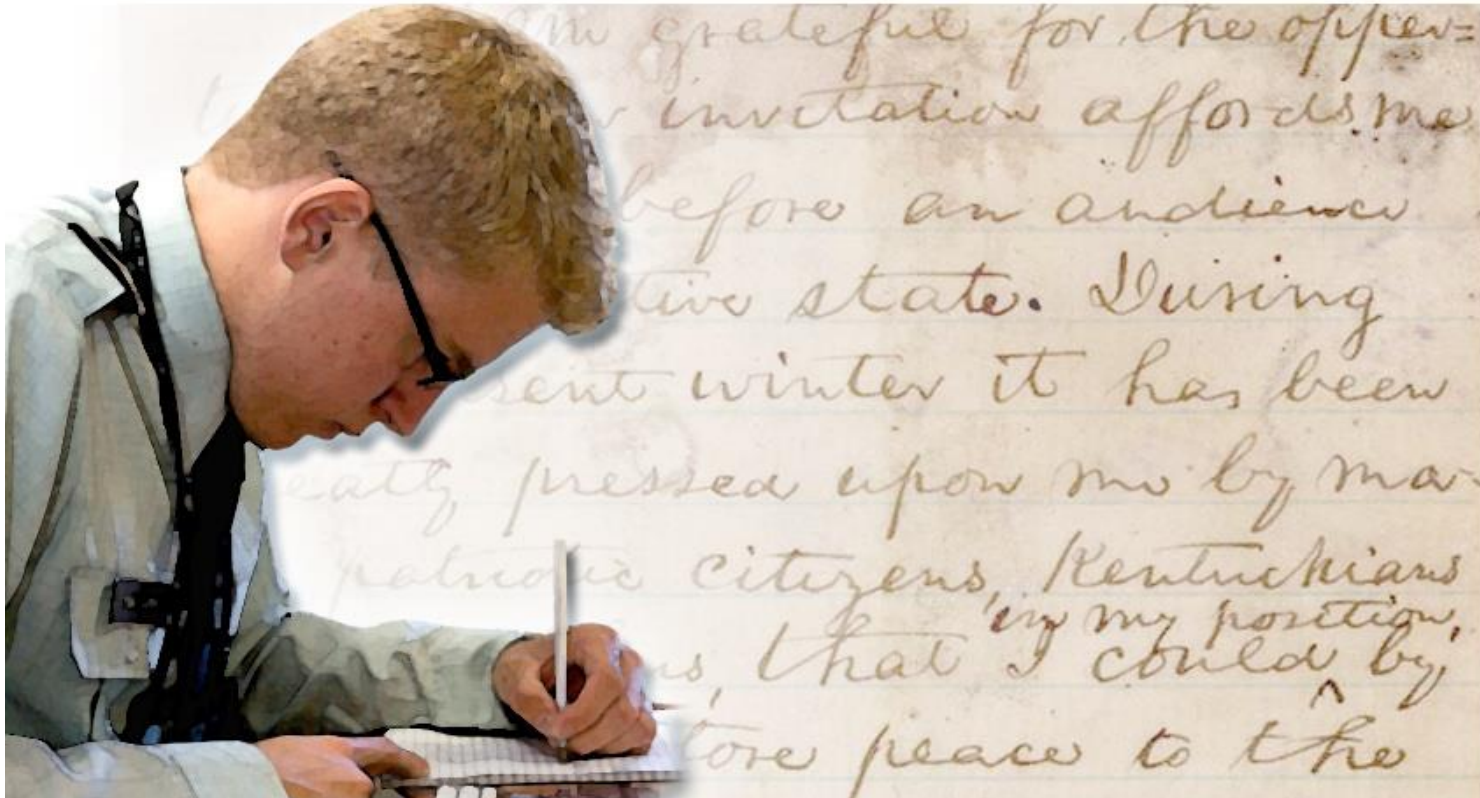 grateful for the opper=
invitation affords me
before an audience
tive state. During
sent winter it has been
pressed upon me by ma-
patriotic citizens, Kentuckians
in my position,
that I could by
^
tore peace to the